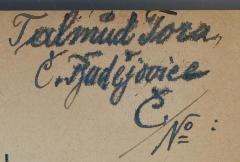 Talmud Tora,
Č. Budějovice
Č
/No: